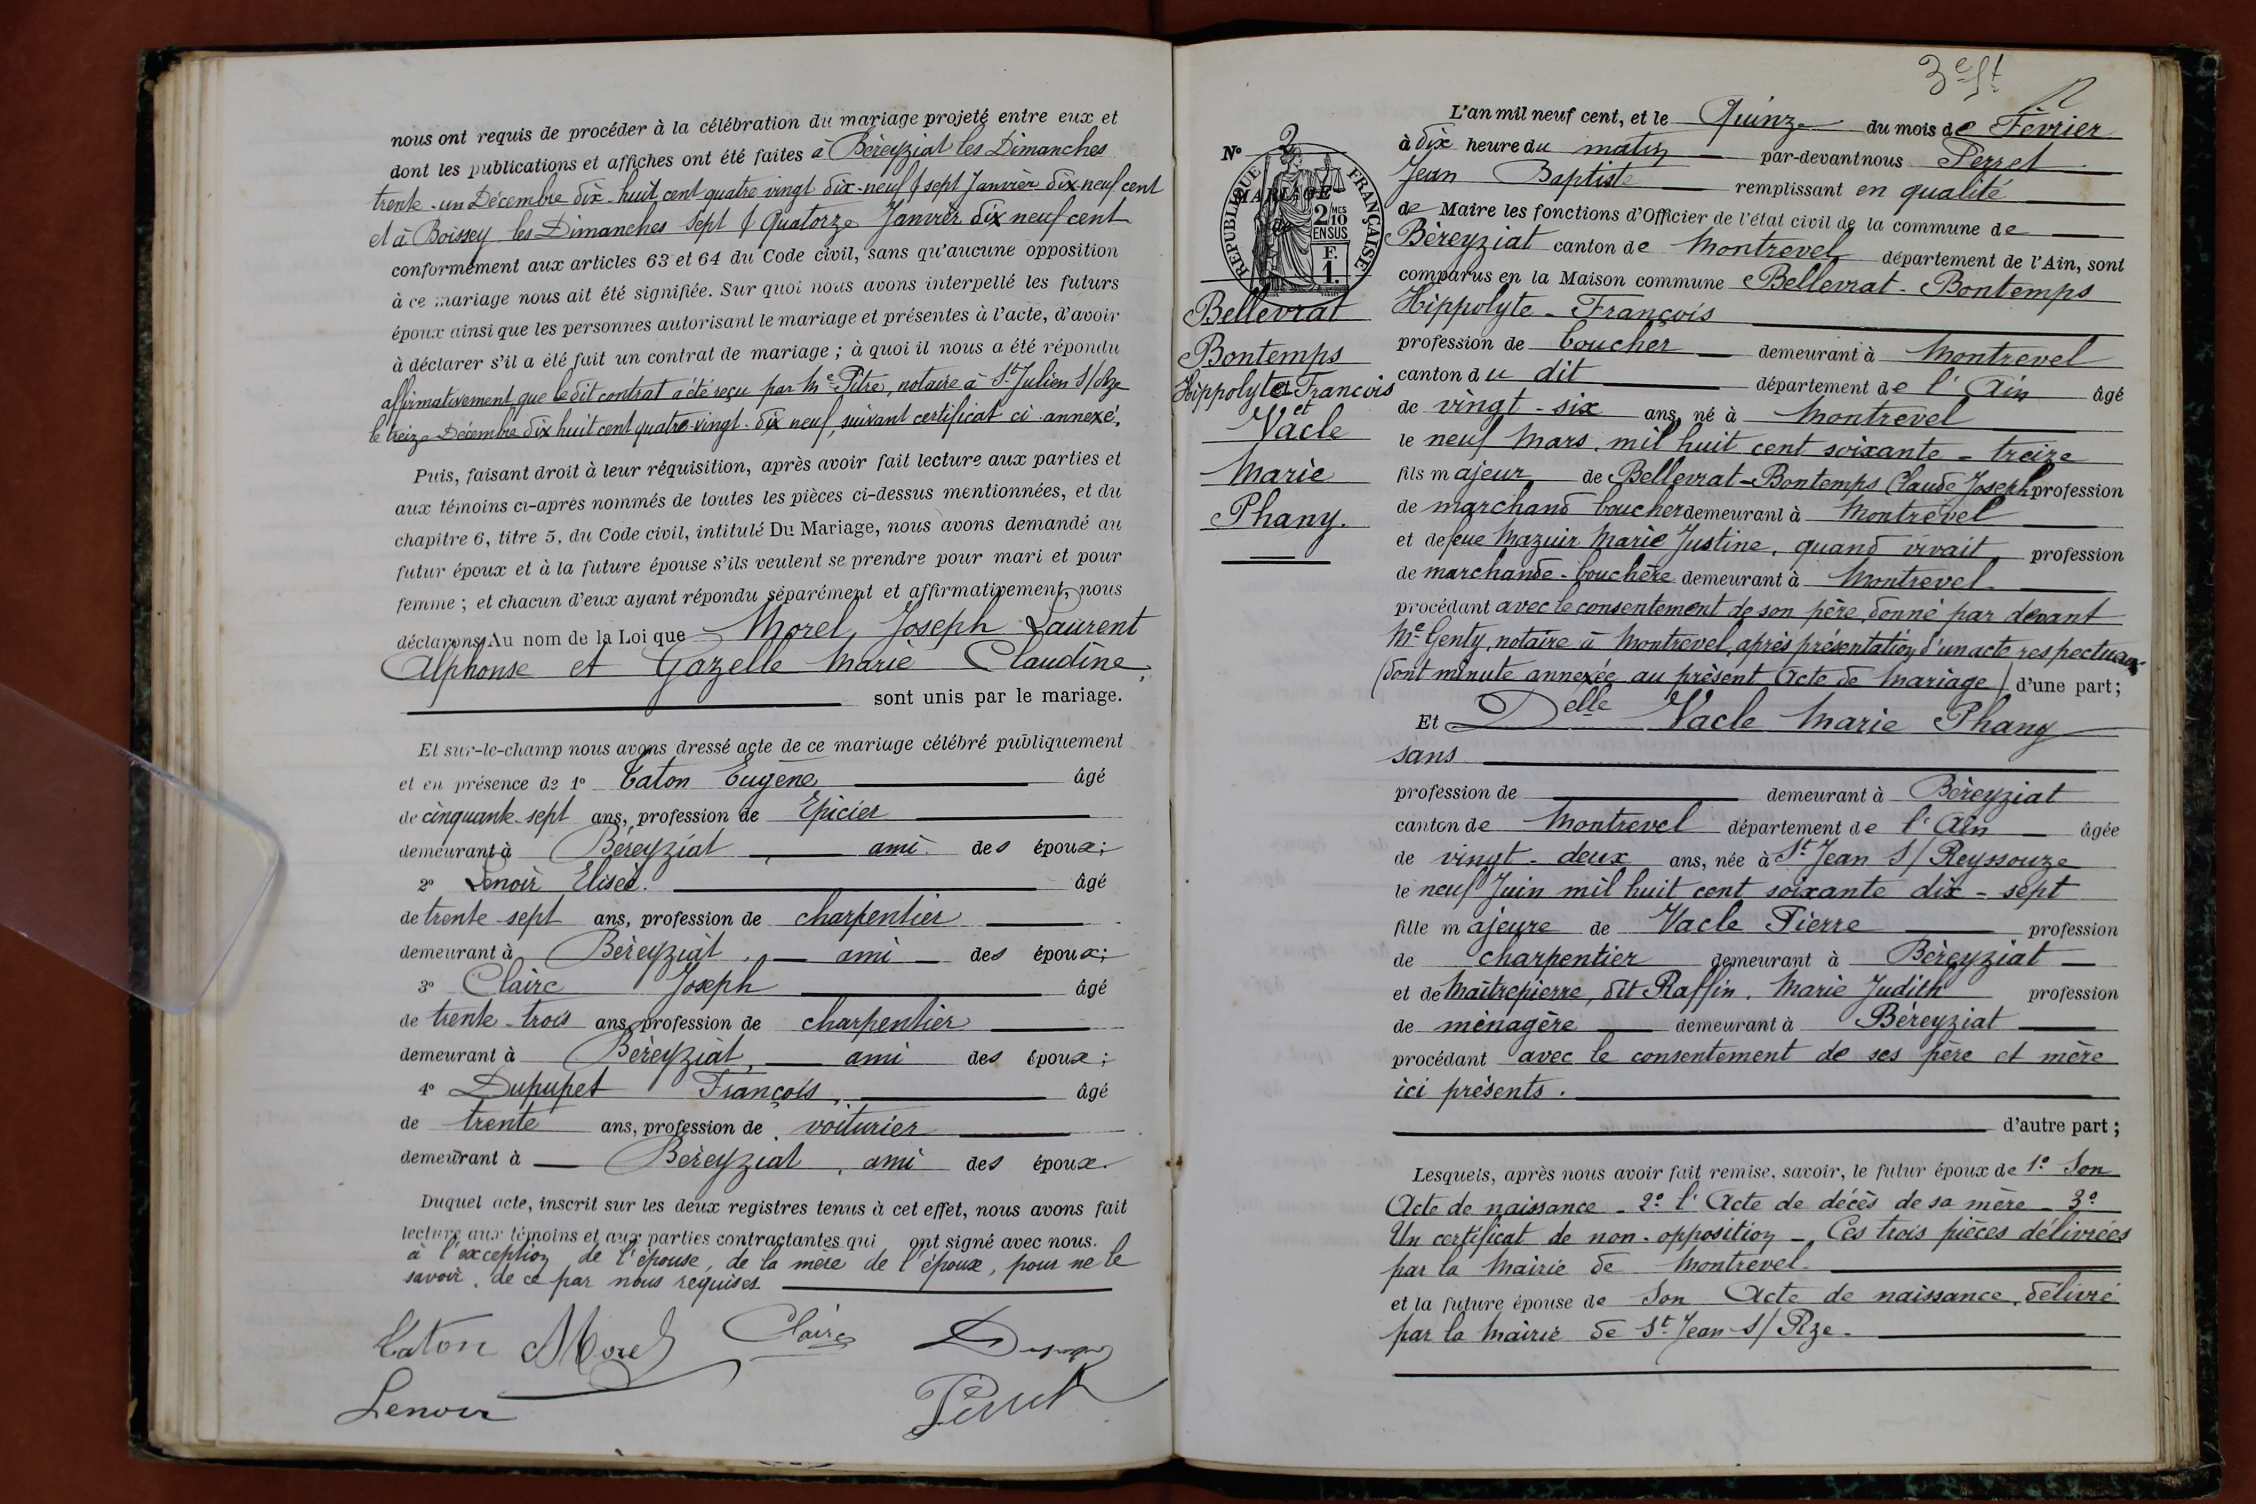 nous ont requis de procéder à la célébration du mariage projeté entre eux et
dont les publications et affiches ont été faites à Béreyziat les Dimanches
trente-un Décembre dix-huit cent quatre vingt dix-neuf & sept Janvier dix-neuf cent
et à Boissey les Dimanches sept & Quatorze Janvier dix neuf cent
conformément aux articles 63 et 64 du Code civil, sans qu'aucune opposition
à ce mariage nous ait été signifiée. Sur quoi nous avons interpellé les futurs
époux ainsi que les personnes autorisant le mariage et présentes à l'acte, d'avoir
à déclarer s'il a été fait un contrat de mariage ; à quoi il nous a été répondu
affirmativement, que le dit contrat a été reçu par Me Pitre, notaire à St Julien S/Rze
le treize Décembre dix huit cent quatre-vingt-dix neuf, suivant certificat ci-annexé.
Puis, faisant droit à leur réquisition, après avoir fait lecture aux parties et
aux témoins ci-après nommés de toutes les pièces ci-dessus mentionnées, et du
chapitre 6, titre 5, du Code civil, intitulé Du Mariage, nous avons demandé au
futur époux et à la future épouse s'ils veulent se prendre pour mari et pour
femme ; et chacun d'eux ayant répondu séparément et affirmativement, nous
déclarons Au nom de la Loi que Morel, Joseph Laurent
Alphonse et Gazelle Marie Claudine,
sont unis par le mariage.
Et sur-le-champ nous avons dressé acte de ce mariage célébré publiquement
et en présence de 1° Caton Eugène âgé
de cinquante-sept ans, profession de Epicier
demeurant à Béreyziat, ami des époux;
2° Lenoir Elisée. âgé
de trente-sept ans, profession de charpentier
demeurant à Béreyziat, ami des époux;
3° Claire Joseph âgé
de trente-trois ans, profession de charpentier
demeurant à Béreyziat, ami des époux;
4° Dupupet François, âgé
de trente ans, profession de voiturier
demeurant à Béreyziat, ami des époux.
Duquel acte, inscrit sur les deux registres tenus à cet effet, nous avons fait
lecture aux témoins et aux parties contractantes qui ont signé avec nous.
à l'exception de l'épouse, de la mère de l'époux, pour ne le
savoir, de ce par nous requises.
Caton Morel Claire
Lenoir Perret
3e ft
L'an mil neuf cent, et le Quinze du mois de Février
N° 2
à dix heure du matin par-devant nous Perret
Jean Baptiste remplissant en qualité
de Maire les fonctions d'Officier de l'état civil de la commune de
Béreyziat canton de Montrevel département de l'Ain, sont
comparus en la Maison commune Bellevrat-Bontemps
Hippolyte-François
profession de boucher demeurant à Montrevel
canton du dit département de l'Ain âgé
de vingt-six ans, né à Montrevel
le neuf Mars, mil huit cent soixante-treize
fils majeur de Bellevrat-Bontemps Claude Joseph profession
de marchand boucher demeurant à Montrevel
et de feue Mazuir Marie Justine, quand vivait profession
de marchande-bouchère demeurant à Montrevel
procédant avec le consentement de son père, donné par devant
Me Genty, notaire à Montrevel, après présentation d'un acte respectueux
(dont minute annexée au présent Acte de Mariage) d'une part;
Et Delle Vacle Marie Phany
sans
profession de demeurant à Béreyziat
canton de Montrevel département de l'Ain âgée
de vingt-deux ans, née à St Jean S/Reyssouze
le neuf Juin mil huit cent soixante dix-sept
fille majeure de Vacle Pierre profession
de charpentier demeurant à Béreyziat
et de Maîtrepierre, dit Raffin, Marie Judith profession
de ménagère demeurant à Béreyziat
procédant avec le consentement de ses père et mère
ici présents.
d'autre part;
Lesquels, après nous avoir fait remise, savoir, le futur époux de 1° Son
Acte de naissance - 2° l'Acte de décès de sa mère - 3°
Un certificat de non-opposition - Ces trois pièces délivrées
par la Mairie de Montrevel.
et la future épouse de Son Acte de naissance, délivré
par la Mairie de St Jean S/Rze.
MARIAGE
de
RÉPUBLIQUE FRANÇAISE
2 MES
10
EN SUS
F.
1.
Bellevrat
Bontemps
Hippolyte-François
et
Vacle
Marie
Phany.